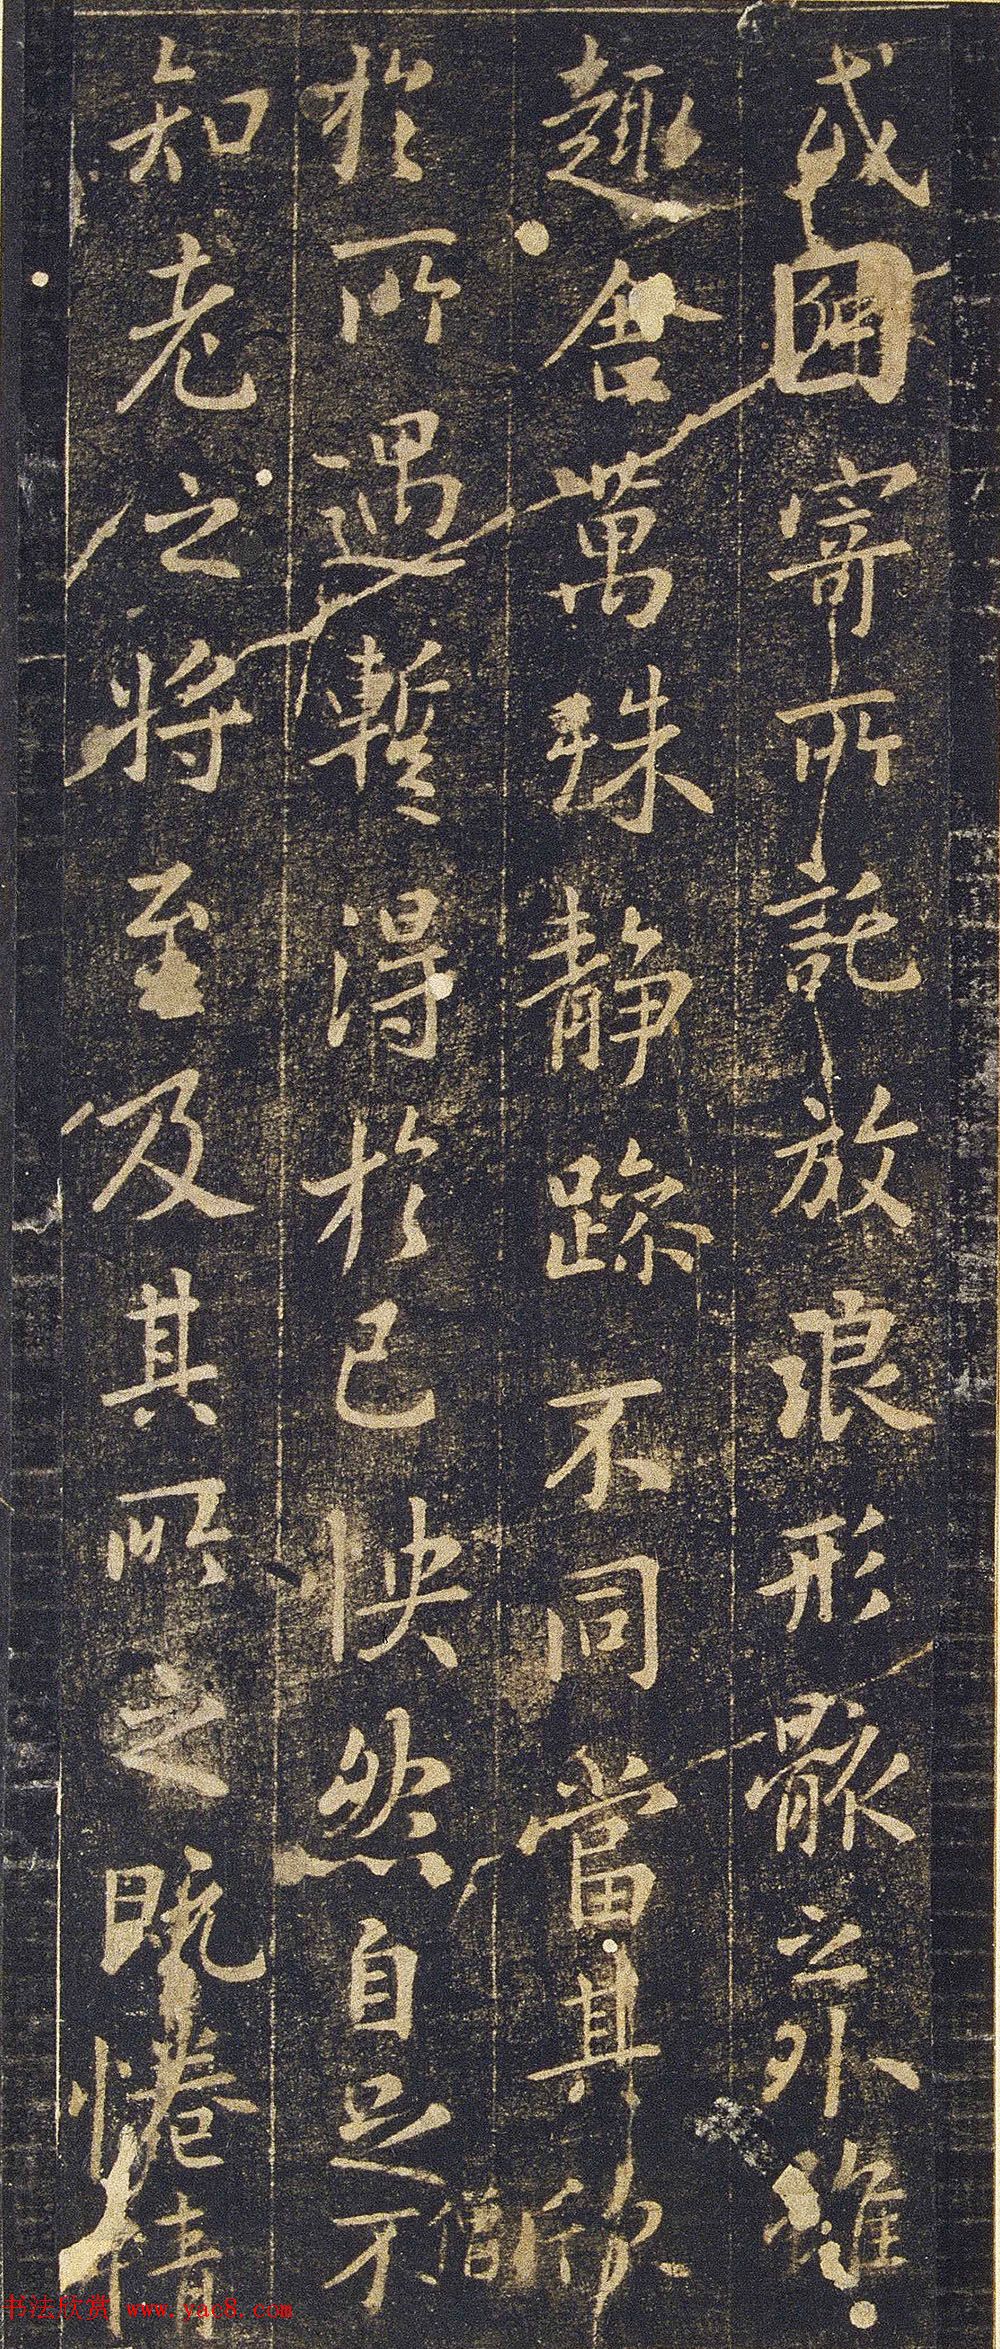 或因寄所託放浪形骸之外雖
趣舍萬殊靜躁不同當其欣
於所遇暫得於己怏然自足不
僧
知老之將至及其所之既惓情
书法欣赏 www.yac8.com